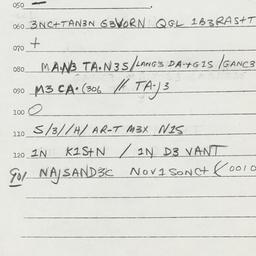 050
060 3NC+TAN3N G3VORN QGL 1B3RAS+T
070 +
080 MAN3 TA·N3S/LANG3 DA++G1S /GANC3
090 M3 CA·(306 // TA·J3
100 O
110 S/3//H/ AR-T M3X N1S
120 1N K1S+N / 1N D3 VANT
90/ NAJSAND3C NOV1SONC+ 0010